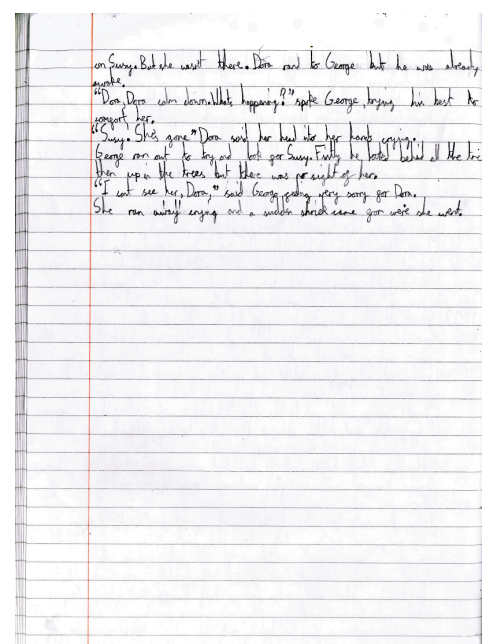 on Susy. But she wasn't there. Dora rand to George but he was already
awake.
"Dora, Dora calm down. Whats happening?" spoke George, trying his best to
comfort her.
"Susy. She's gone" Dora said her head into her hands crying.
George ran out to try and look for Susy. Firstly he looked behind all the
then up in the trees but there was no sight of her.
"I cant see her, Dora," said George feeling very sorry for Dora.
She ran away crying and a sudden shriek came from were she went.